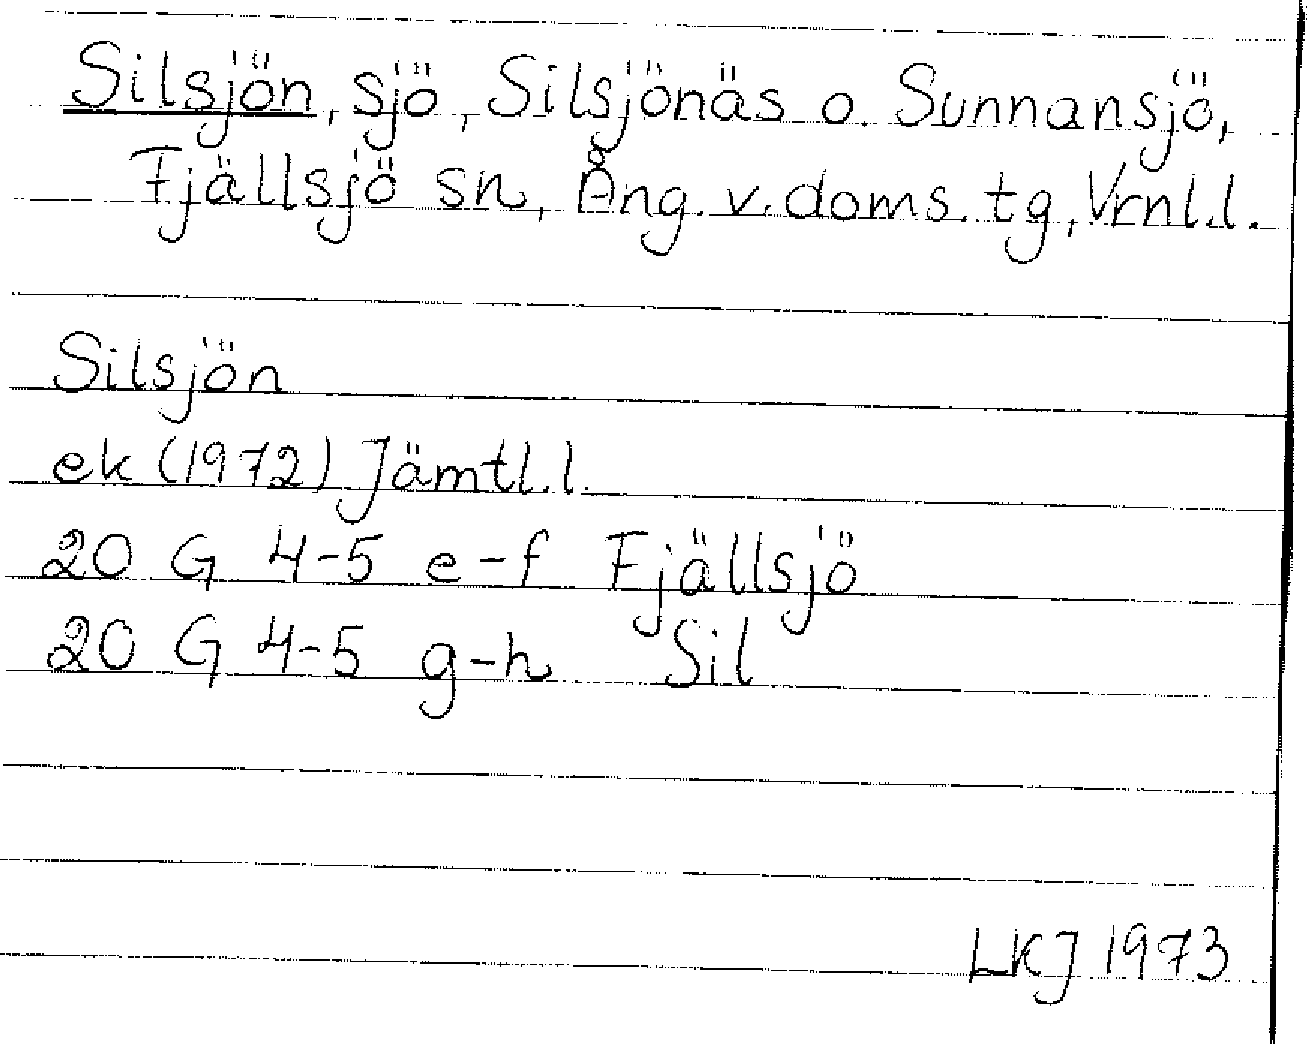 Silsjön, sjö, Silsjönäs o. Sunnansjö,
Fjällsjö sn, Ång. v. doms. tg, Vrnl.l.
Silsjön
ek (1972) Jämtl.l.
20 G 4-5 e-f Fjällsjö
20 G 4-5 g-h Sil
LKJ 1973